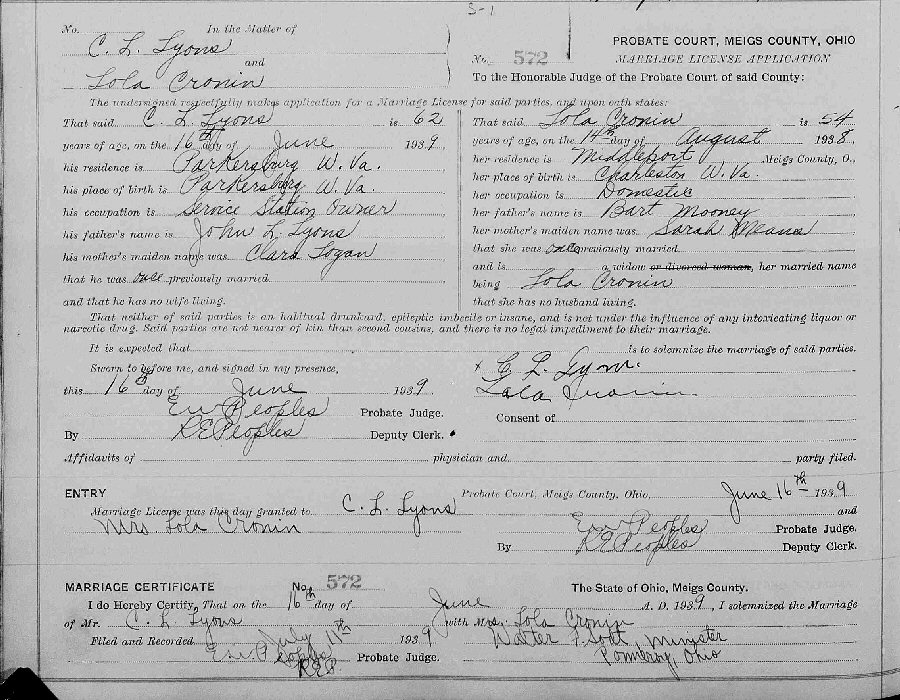 S-1
No. In the Matter of
C. L. Lyons
and
Lola Cronin
PROBATE COURT, MEIGS COUNTY, OHIO
No. 572 MARRIAGE LICENSE APPLICATION
To the Honorable Judge of the Probate Court of said County:
The undersigned respectfully makes application for a Marriage License for said parties, and upon oath states:
That said C. L Lyons is 62
years of age, on the 16th day of June 1939
his residence is Parkersburg W. Va.
his place of birth is Parkersburg W. Va.
his occupation is Service Station Owner
his father's name is John L Lyons
his mother's maiden name was Clara Logan
that he was once previously married
and that he has no wife living.
That said Lola Cronin is 54
years of age, on the 14th day of August 1938.
her residence is Middleport, Meigs County, O.,
her place of birth is Charleston W. Va.
her occupation is Domestic
her father's name is Bart Mooney
her mother's maiden name was Sarah Means
that she was once previously married
and is a widow or divorced woman, her married name
being Lola Cronin
that she has no husband living.
That neither of said parties is an habitual drunkard, epileptic imbecile or insane, and is not under the influence of any intoxicating liquor or
narcotic drug. Said parties are not nearer of kin than second cousins, and there is no legal impediment to their marriage.
It is expected that is to solemnize the marriage of said parties.
Sworn to before me, and signed in my presence,
this 16th day of June 1939
Peoples Probate Judge.
By R E Peoples Deputy Clerk.
x C. L. Lyons
Lola Cronin
Consent of
Affidavits of physician and party filed.
ENTRY Probate Court, Meigs County, Ohio, June 16th 1939
Marriage License was this day granted to C. L. Lyons and
Mrs Lola Cronin
Peoples Probate Judge.
By R E Peoples Deputy Clerk.
MARRIAGE CERTIFICATE No. 572 The State of Ohio, Meigs County.
I do Hereby Certify, That on the 16th day of June A. D. 1939, I solemnized the Marriage
of Mr. C. L Lyons with Mrs. Lola Cronin
Filed and Recorded July 11th 1939 Walter Minister
Peoples Probate Judge. Pomeroy, Ohio
R.E.P.